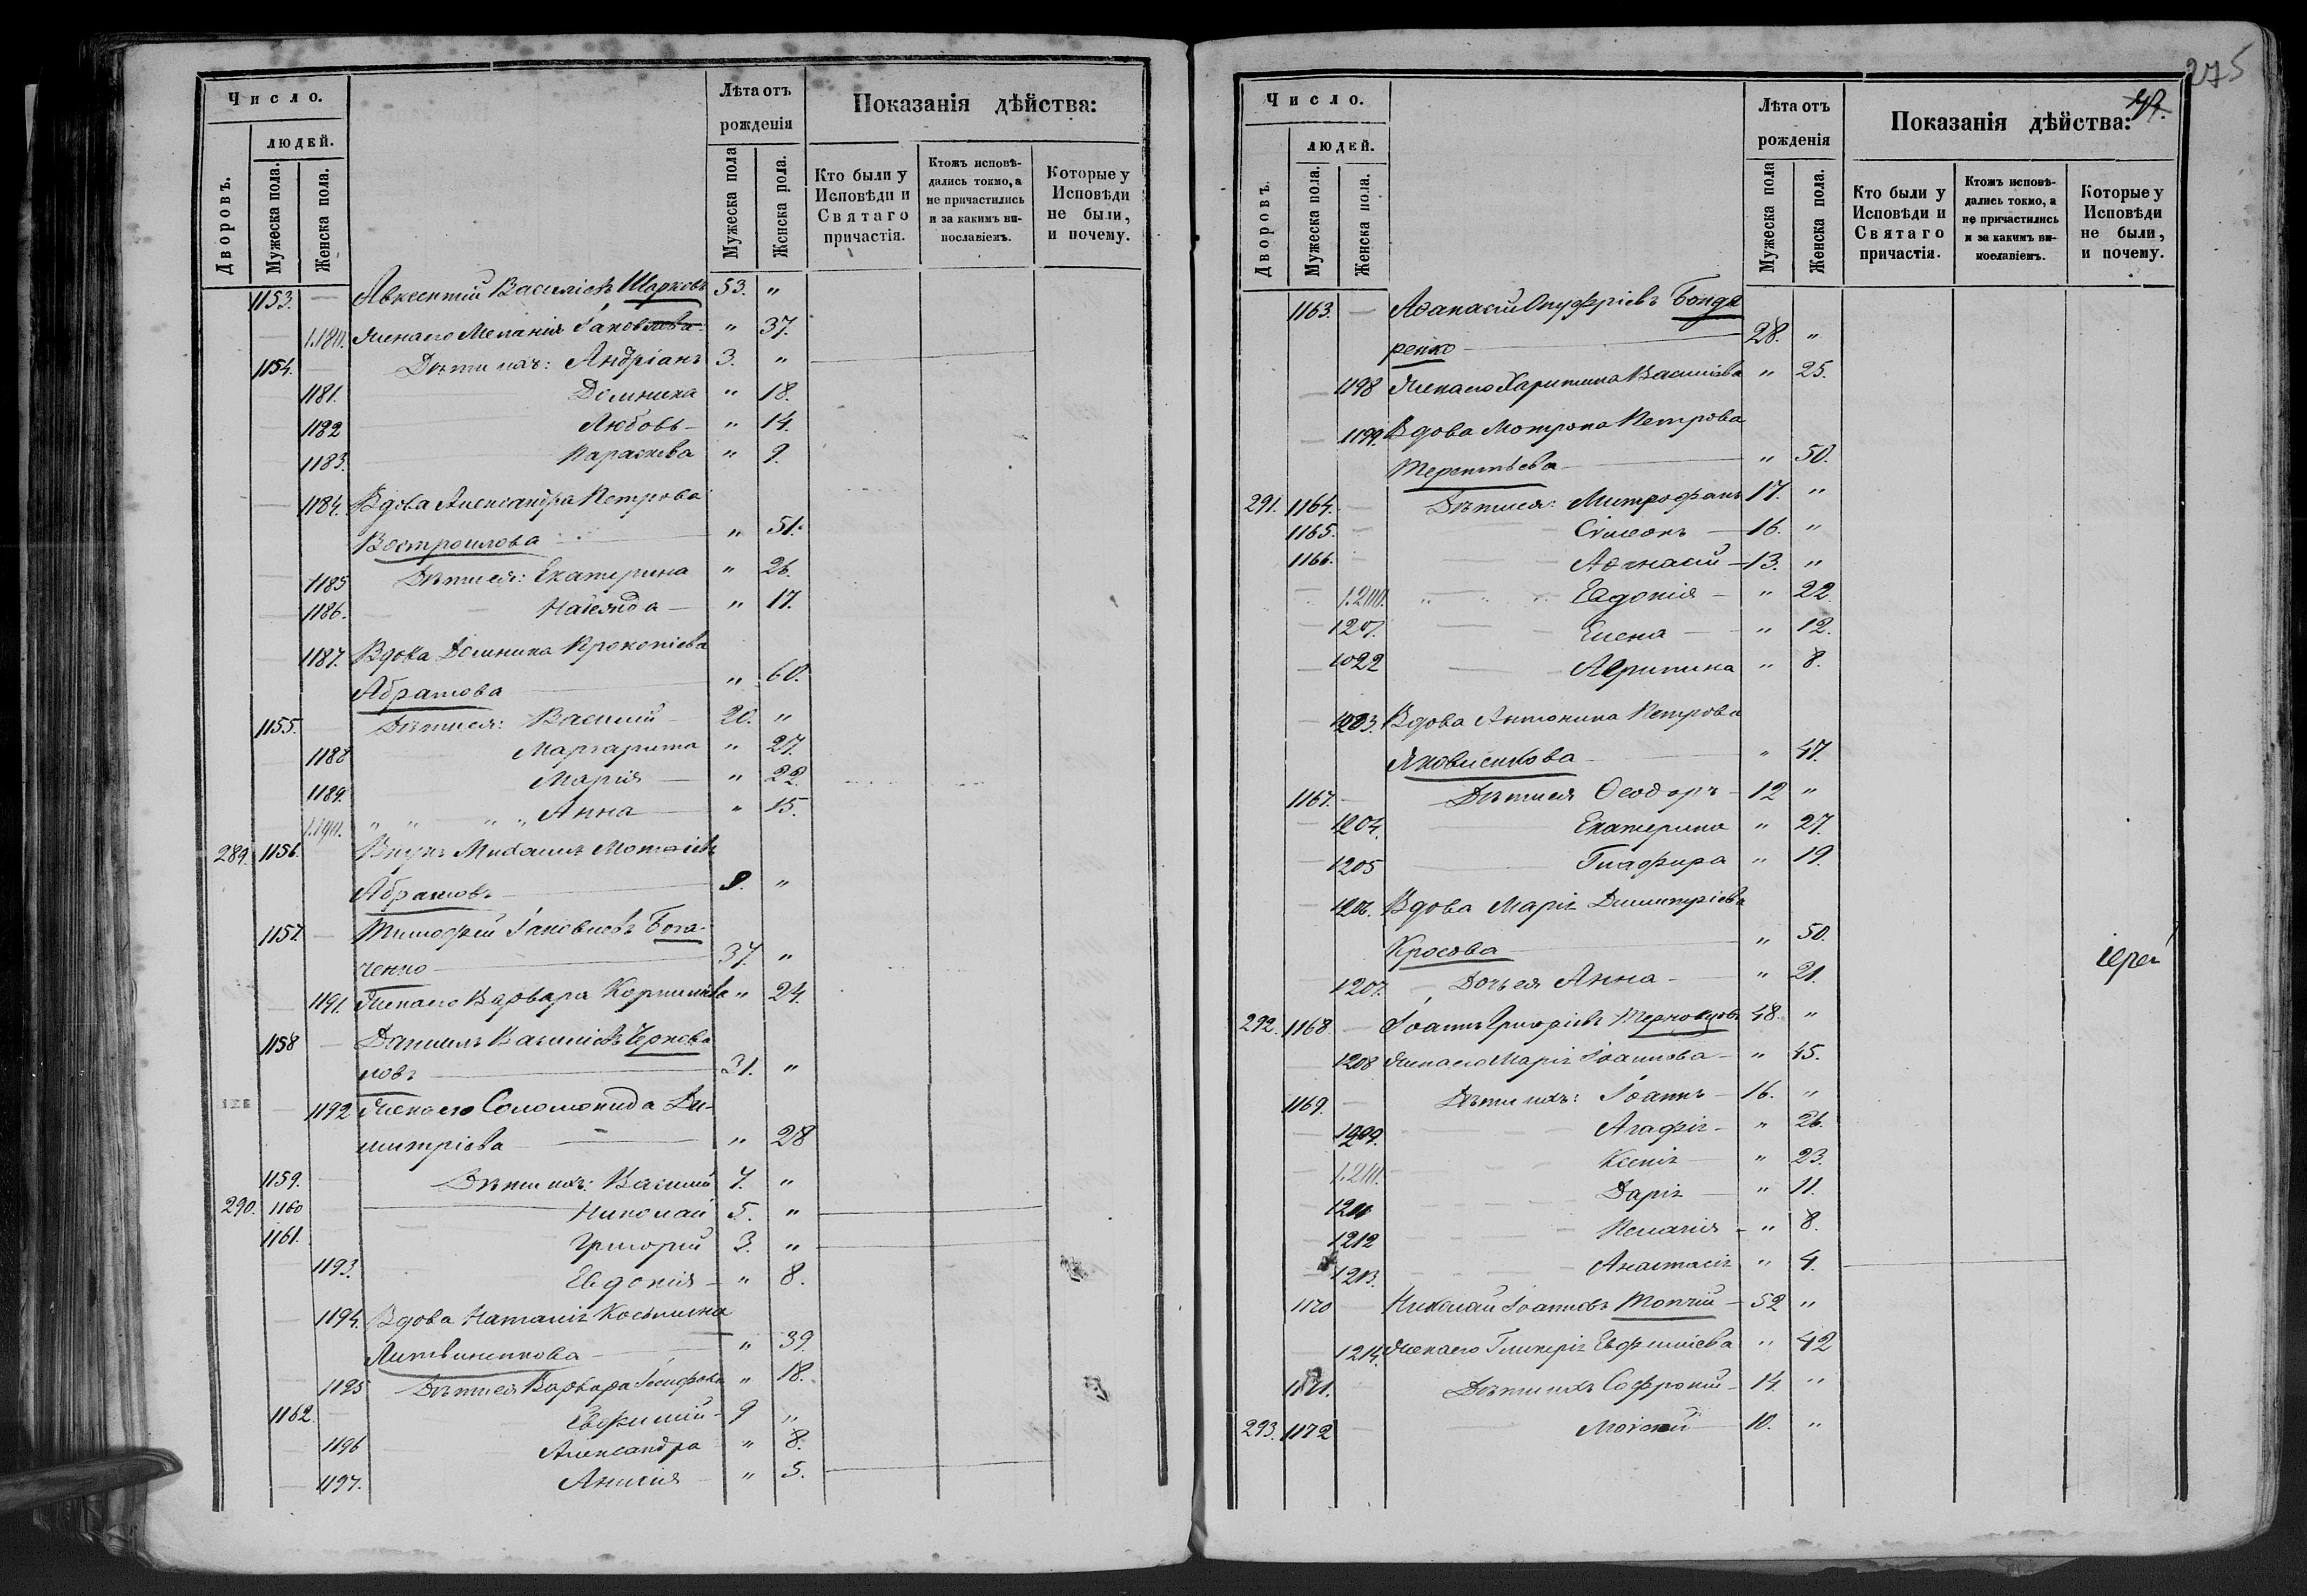 Число.
людей.
Дворовъ.
Мужеска пола.
Женска пола.
Лѣта отъ
рожденія
Мужеска пола
Женска пола.
Показанія дѣйства:
Кто были у
Исповѣди и
Святаго
причастія.
Ктожъ исповѣ-
дались токмо, а
не причастились
и за какимъ ви-
нословіемъ.
Которые у
Исповѣди
не были,
и почему.
1153. Авксентій Василіевъ Шарковъ 53. "
Жена его Меланія Іаковлева " 37.
1154. Дѣти ихъ: Андріанъ 3. "
1181. Домника " 18.
1182 Любовь " 14.
1183. Параскева " 9.
1184. Вдова Александра Петрова
Востроилова " 51.
1185 Дѣти ея: Екатерина " 26.
1186. " 17.
1187. Вдова Домника Прокопіева
Абрамова " 60.
1155. Дѣти ея: Василій 20. "
1188 Маргарита " 27.
1189. Марія " 22.
1190. " " " " Анна " 15.
289. 1156. Внукъ Михаилъ
Абрамовъ 8. "
1157. Тимофей Іаковлевъ Бога-
ченко 37. "
1191. Жена его Варвара Корниліева " 24.
1158 Даніилъ Василіевъ
ловъ 31. "
1192 Жена его Соломонида Ди-
митріева " 28
1159. Дѣти ихъ: Василій 7. "
290. 1160 Николай 5. "
1161. Григорій 3. "
1193. Евдокія " 8.
1194. Вдова Наталія Косьмина
Литвиненкова " 39.
1195 Дѣти ея Варвара Іосифова " 18.
1162. Евфимій 9 "
1196 Александра " 8.
1197. Анисія " 5.
275
Число.
людей.
Дворовъ.
Мужеска пола.
Женска пола.
Лѣта отъ
рожденія
Мужеска пола
Женска пола.
Показанія дѣйства:
Кто были у
Исповѣди и
Святаго
причастія.
Ктожъ исповѣ-
дались токмо, а
не причастились
и за какимъ ви-
нословіемъ.
Которые у
Исповѣди
не были,
и почему.
1163. Аѳанасій Онуфріевъ Бонда
ренко 28. "
1198 Жена его Харитина Василіева " 25.
1199. Вдова Мотрона Петрова
Терентьева " 50.
291. 1164. Дѣти ея: Митрофанъ 17. "
1165. Сѵмеонъ 16. "
1166. Аѳанасій 13. "
Евдокія " 22.
1201. Елена " 12.
Агрипина " 8.
Вдова Антонина Петрова
Яковленкова " 47.
1167. Дѣти ея Ѳеодоръ 12 "
1204. Екатерина " 27.
1205 Глафира " 19.
1206. Вдова Марія Димитріева
Красова " 50.
1207. Дочь ея Анна " 21.
292. 1168. Іоаннъ Григоріевъ 48. "
1208 Жена его Марія Іоаннова " 45.
1169. Дѣти ихъ: Іоаннъ 16. "
1209. Агафія " 26.
Ксенія " 23.
1211 Дарія " 11.
1212 Пелагія " 8.
1213. Анастасія " 4.
1170 Николай Іоанновъ Топчій 52 "
1214. Жена его Гликерія Евфиміева " 42
1171. Дѣти ихъ Софроній 14. "
293. 1172 Моѵсей 10. "
іерей